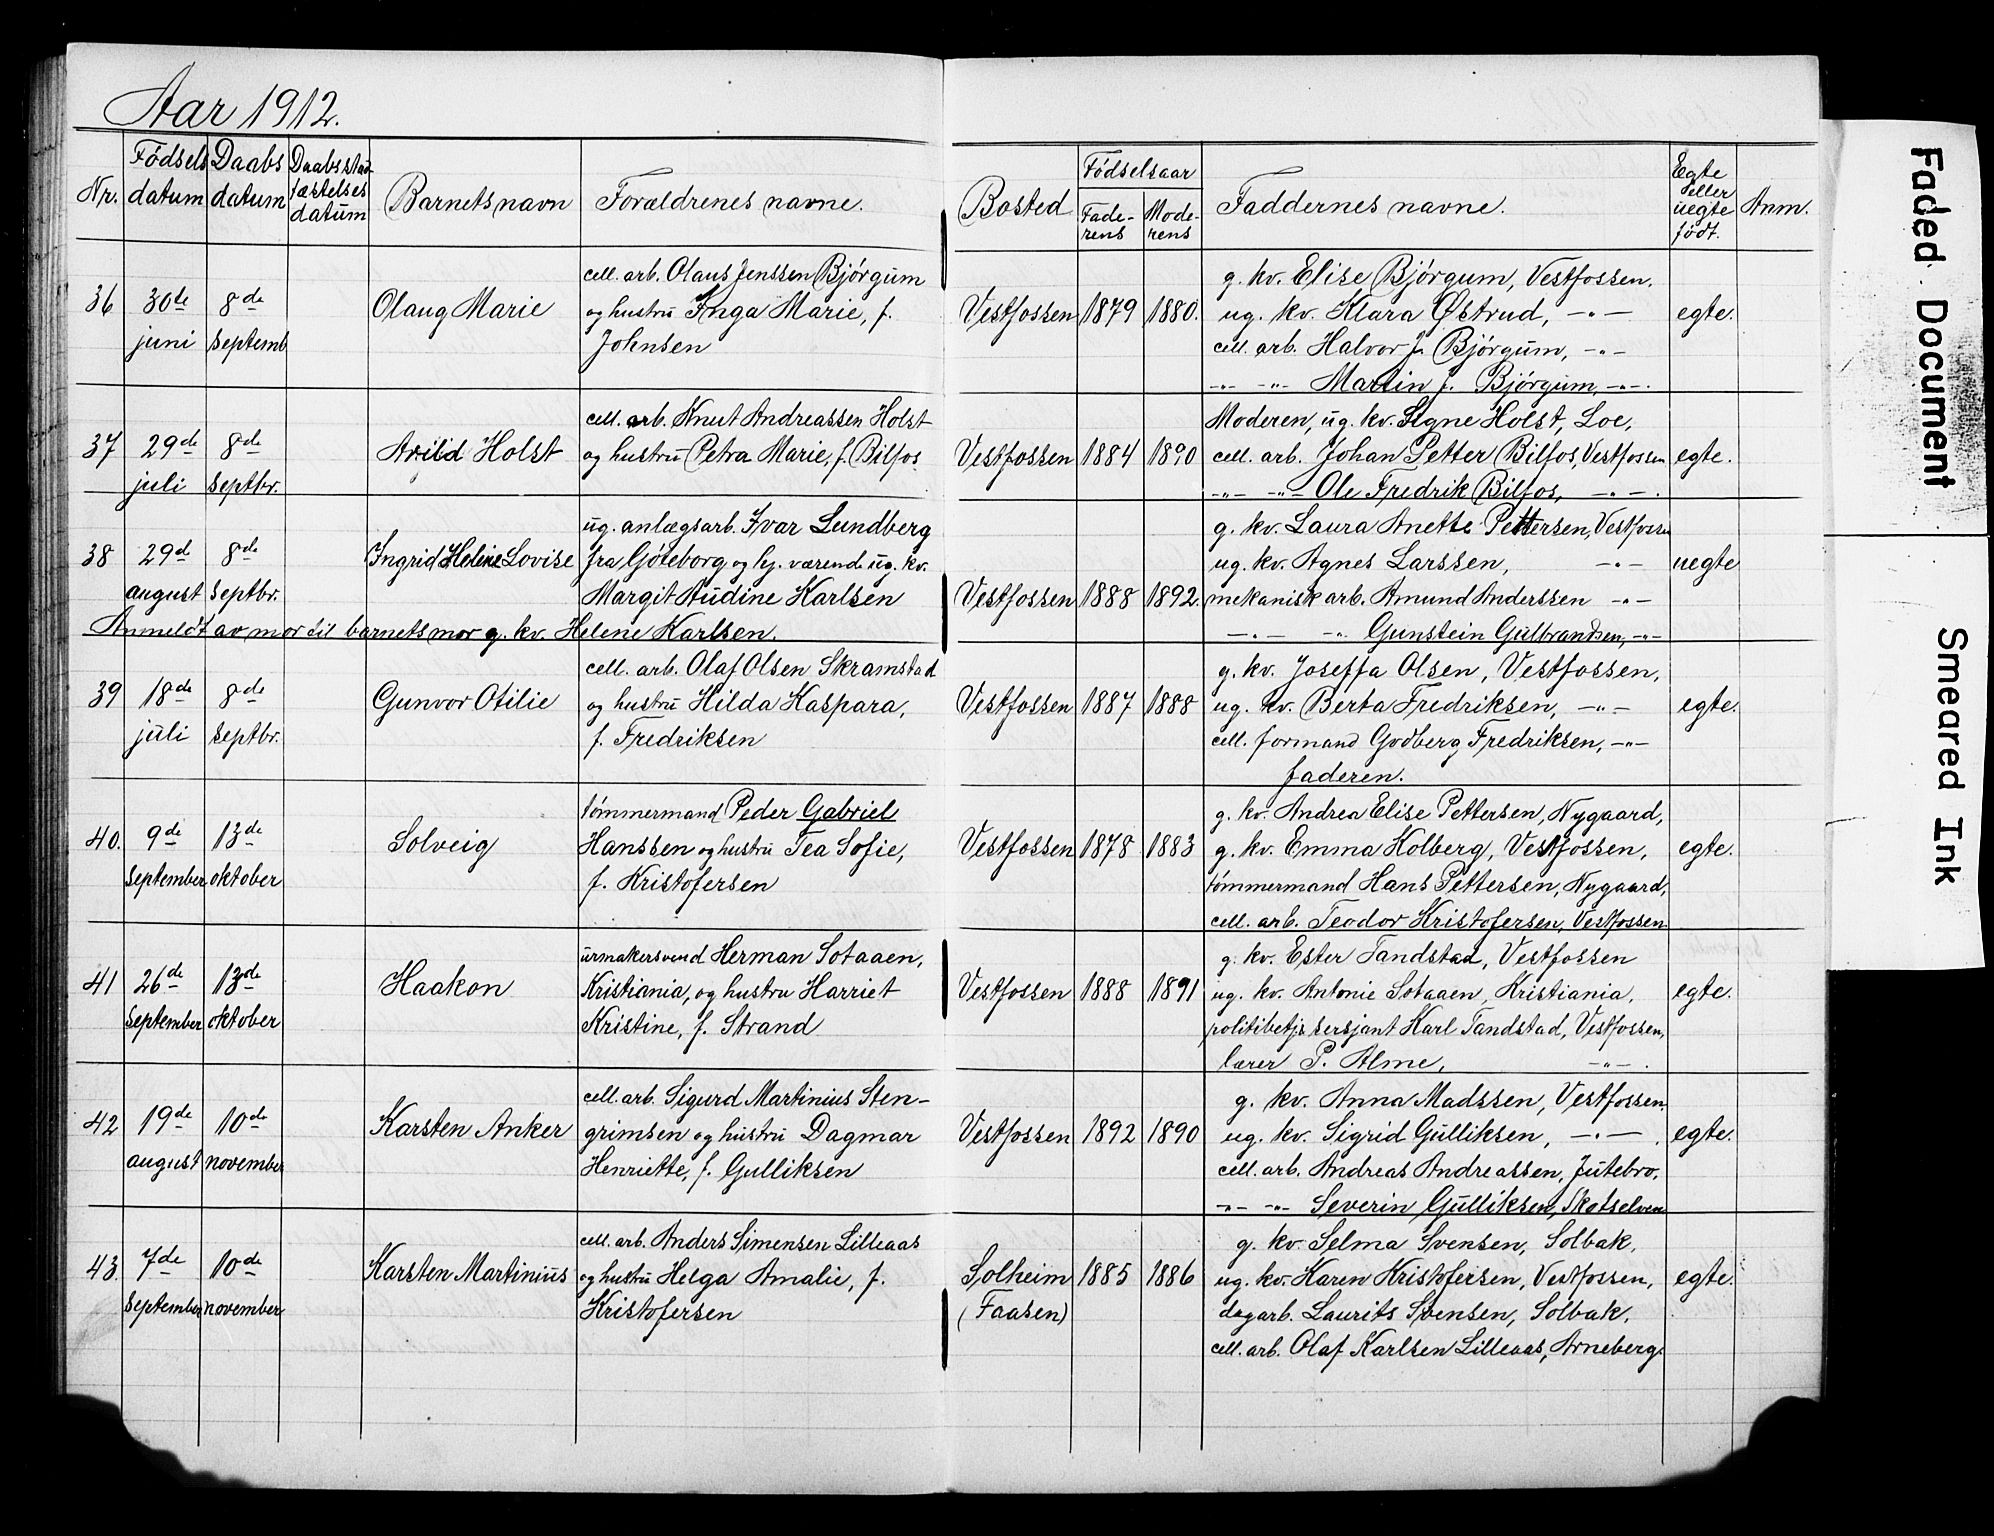 Aar 1912.
Nr. Fødsels datum Daabs datum Daabsstadfæstelses datum Barnets navn Forældrenes navne. Bosted Fødselsaar Faderens Moderens Faddernes navne. Egte eller uegte født. Anm.
36 30de juni 8de septemb Olaug Marie
cell. arb. Olaus Jenssen Bjørgum
og hustru Inga Marie, f.
Johnsen
Vestfossen 1879 1880.
g. kv. Elise Bjørgum, Vestfossen.
ug. kv. Klara Østrud, -"-
cell. arb. Halvor J. Bjørgum, -"-
-"- -"- Martin J. Bjørgum, -"-.
egte.
37 29de juli 8de septbr. Arild Holst
cell. arb. Knut Andreassen Holst
og hustru Petra Marie, f. Bilfos
Vestfossen 1884 1890
Moderen, ug. kv. Signe Holst, Loe,
cell. arb. Johan Petter Bilfos, Vestfossen
-"- -"- Ole Fredrik Bilfos, -"-.
egte.
38 29d august 8de septbr. Ingrid Helene Lovise
ug. anlægsarb. Ivar Lundberg
fra Göteborg og hj. værende ug. kv.
Margit Audine Karlsen
Anmeldt av mor til barnets mor g. kv. Helene Karlsen.
Vestfossen 1888 1892.
g. kv. Laura Anette Pettersen, Vestfossen
ug. kv. Agnes Larssen, -"-
mekanisk arb. Amund Anderssen -"-
-"- -"- Gunstein Gulbrandsen, -"-
uegte
39 18de juli 8de septbr. Gunvor Otilie
cell. arb. Olaf Olsen Skramstad
og hustru Hilda Kaspara,
f. Fredriksen
Vestfossen 1887 1888
g. kv. Joseffa Olsen, Vestfossen,
ug. kv. Berta Fredriksen, -"-
cell. formand Godberg Fredriksen, -"-
faderen.
egte.
40. 9de september 13de oktober Solveig
tømmermand Peder Gabriel
Hanssen og hustru Tea Sofie,
f. Kristofersen
Vestfossen 1878 1883
g. kv. Andrea Elise Pettersen, Nygaard,
g. kv. Emma Holberg, Vestfossen,
tømmermand Hans Pettersen, Nygaard,
cell. arb. Teodor Kristofersen, Vestfossen
egte.
41 26de september 13de oktober Haakon
urmakersvend Herman Sotaaen,
Kristiania, og hustru Harriet
Kristine, f. Strand
Vestfossen 1888 1891
g. kv. Ester Tandstad, Vestfossen
ug. kv. Antonie Sotaaen, Kristiania,
politibetjs sersjant Karl Tandstad, Vestfossen,
lærer P. Alme, -"-.
egte.
42 19de august 10de november Karsten Anker
cell. arb. Sigurd Martinius Sten-
grimsen og hustru Dagmar
Henriette, f. Gulliksen
Vestfossen 1892 1890
g. kv. Anna Madssen, Vestfossen,
ug. kv. Sigrid Gulliksen, -"-.
cell. arb. Andreas Andreassen, Jutebro,
-"- -"- Severin Gulliksen, Skotselven
egte.
43. 7de september 10de november Karsten Martinius
cell. arb. Anders Simensen Lilleaas
og hustru Helga Amalie, f.
Kristofersen
Solheim (Faasen) 1885 1886
g. kv. Selma Svensen, Solbak,
ug. kv. Karen Kristofersen, Vestfossen,
dagarb. Laurits Svensen, Solbak,
cell. arb. Olaf Karlsen Lilleaas, Arneberg.
egte.
Faded Document
Smeared Ink